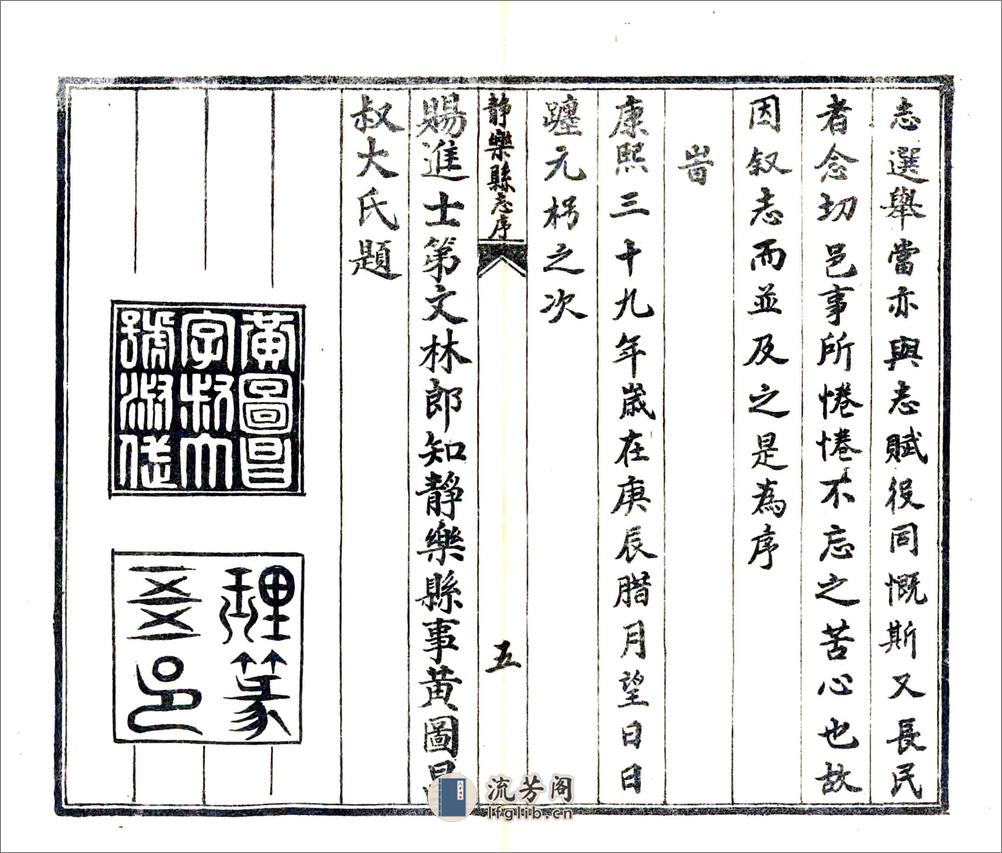 志選舉當亦與志賦役同慨斯又長民
者念切邑事所惓惓不忘之苦心也故
因叙志而並及之是為序
旹
康熙三十九年歲在庚辰腊月望日日
躔元枵之次
靜樂縣志序
五
賜進士第文林郎知靜樂縣事黃圖昌
叔大氏題
黃圖昌
字叔大
號淑
理篆
五邑
流芳阁
lfglib.cn